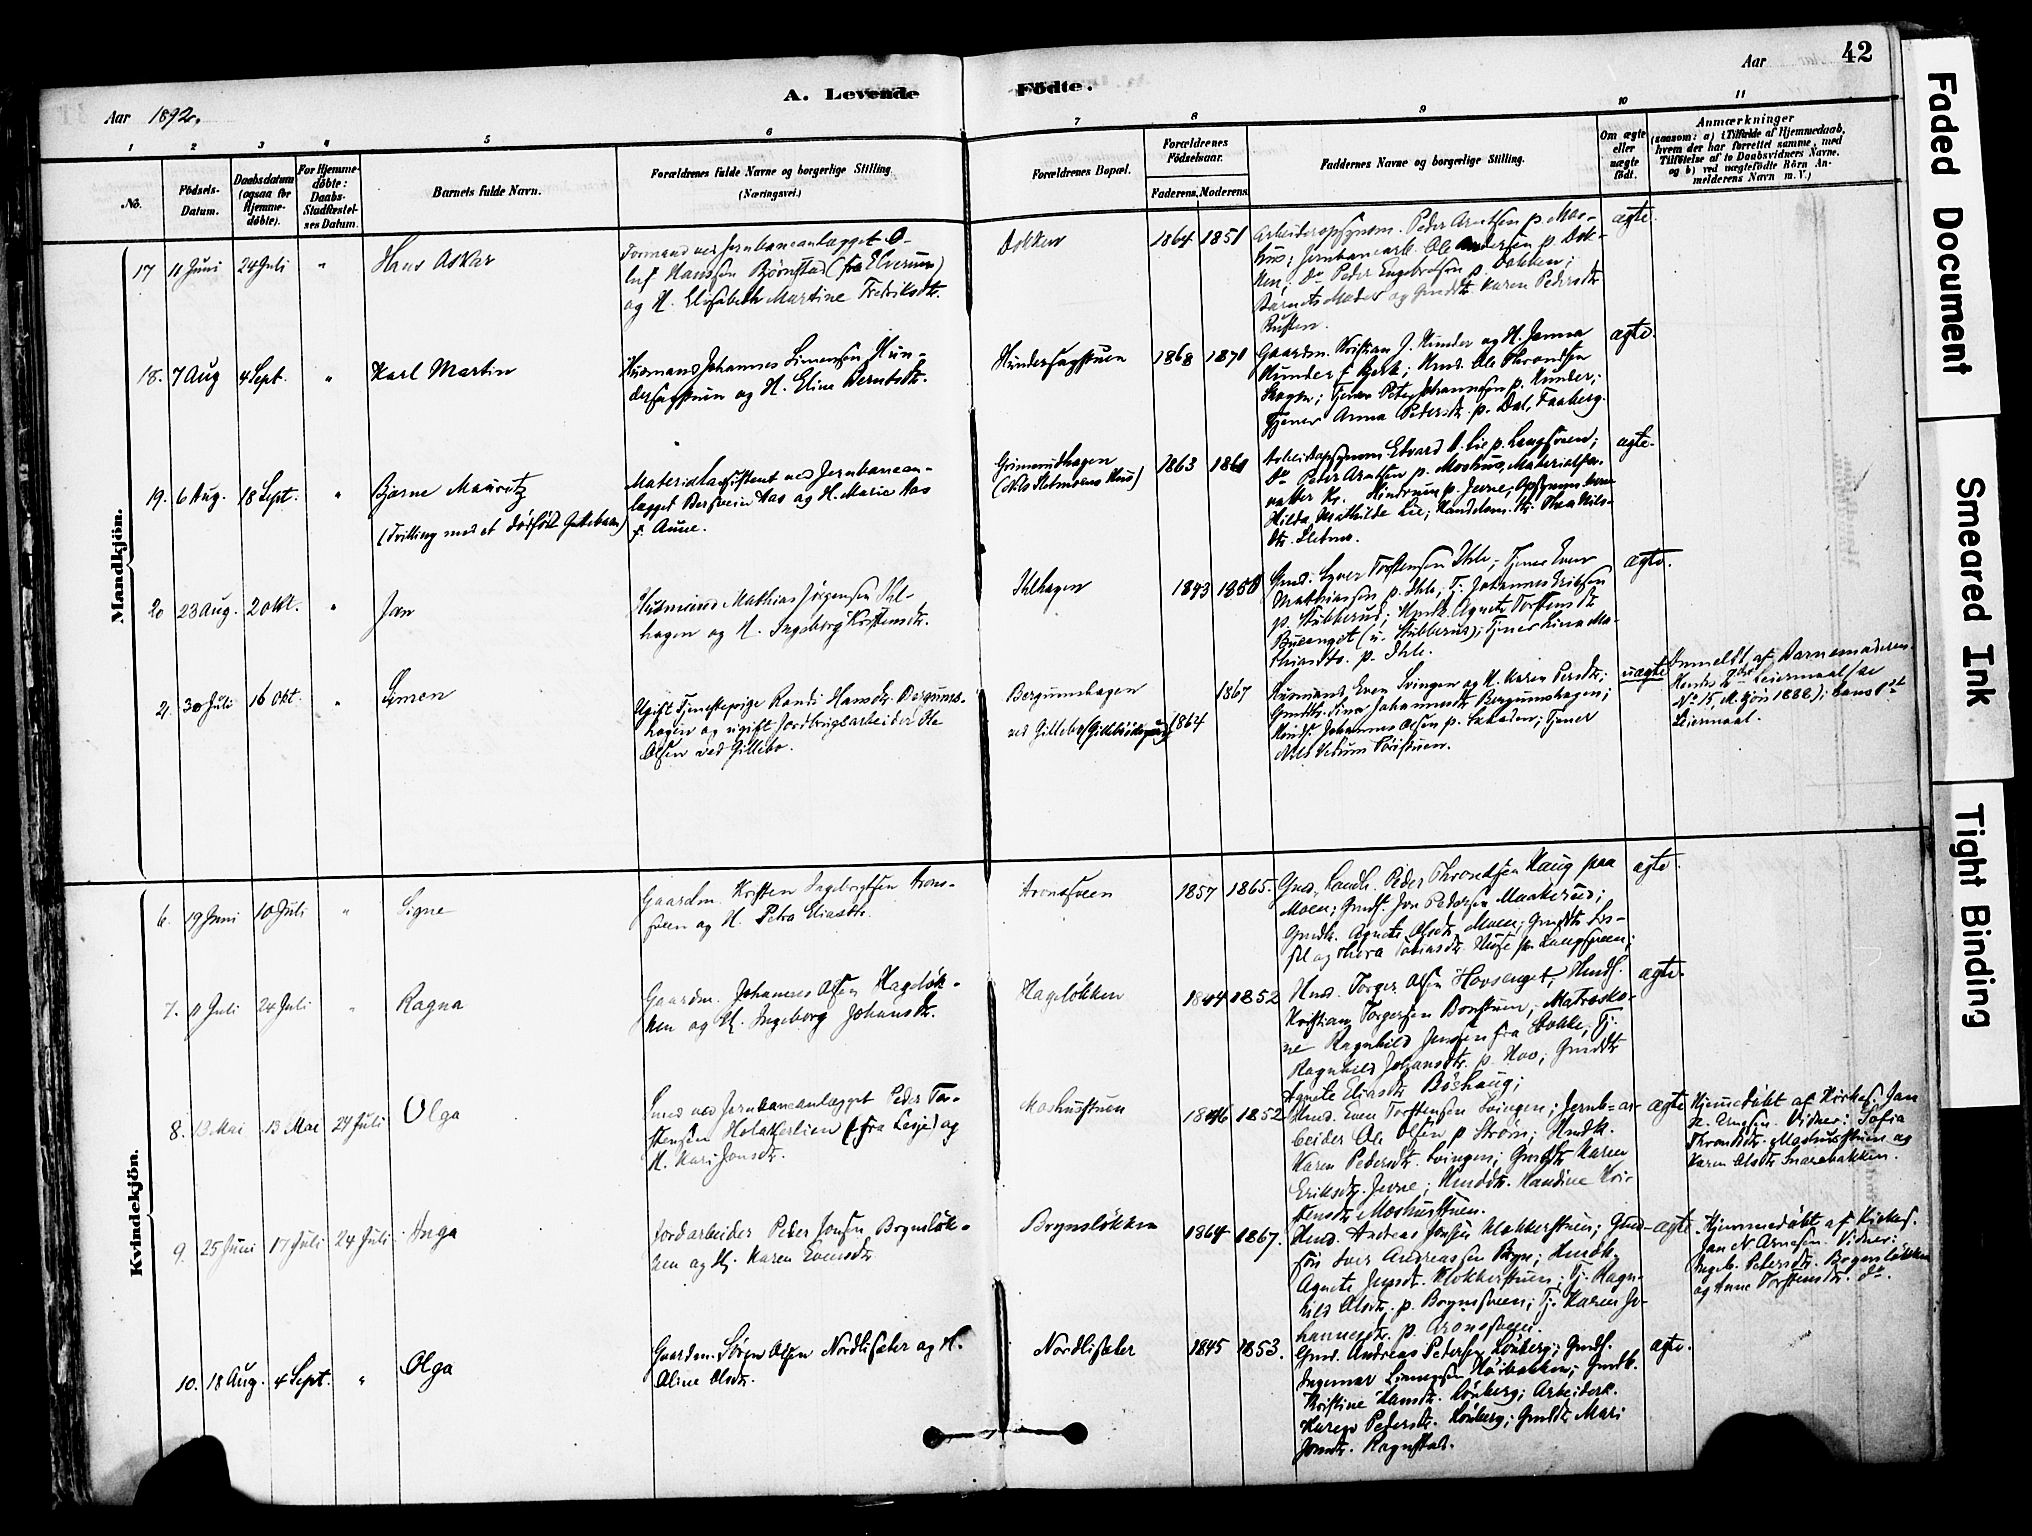 42
Aar 1892.
A. Levende Födte.
Aar
1 2 3 4 5 6 7 8 9 10 11
No.
Födsels-Datum.
Daabsdatum (ogsaa for Hjemme-døbte).
For Hjemme-døbte: Daabs-Stadfæstel-ses Datum.
Barnets fulde Navn.
Forældrenes fulde Navne og borgerlige Stilling (Næringsvei.)
Forældrenes Bopæl.
Forældrenes Fødselsaar.
Faderens. Moderens.
Faddernes Navne og borgerlige Stilling.
Om ægte eller uægte født.
Anmærkninger
(saasom: a) i Tilfælde af Hjemmedaab, hvem der har forrettet samme, med Tilføielse af to Daabsvidners Navne. og b) ved uægtefødte Börn An-melderens Navn m. V.)
Mandkjön.
17 11 Juni 24 Juli " Hans Askar
Formand ved Jernbaneanlægget O-
luf Hanssen Bjørnstad (fra Elverum)
og H. Elisabeth Martine Fredriksdtr.
Dokken
1864 1851
Arbeidsopsynsm. Peder Arntsen p. Mos-
hus; Jernbanearb. Ole Andersen p. Dok-
ken; Do Peder Engebretsen p. Dokken;
Barnets Moder og Gmdtr. Karen Pedersdtr.
Rusten.
ægte.
18. 7 Aug 4 Sept. " Karl Martin
Husmand Johannes Simensen Hun-
dersagstuen og H. Eline Berntsdtr.
Hundersagstuen
1868 1871
Gaardm. Kristian J. Hunder og H. Janna
Hunder f. Bjerk; Hmd. Ole Throndsen
Skogen; Tjener Peter Johannesen p. Hunder;
Tjener Anna Pedersdtr. p. Dal, Faaberg.
ægte.
19. 6 Aug. 18 Sept. " Bjarne Mauritz
(Tvilling med et dødfødt Guttebarn)
Materialassistent ved Jernbanean-
lægget Bersvein Aas og H. Marie Aas
f. Aune.
Grimrudhagen
(Nils Sletmoens Hus)
1863 1861
Arbeidsopsynsm. Edvard A. Lie p. Langsveen;
Do Peter Arntsen p. Moshus, Materialfor-
valter Kr. Hindrum p. Jevne; Opsynsm.kone
Hilda Mathilde Lie; Handelsm. Kr. Thea Nils-
dtr. Sletmo.
ægte.
20 23 Aug. 2 Okt. " Jan
Husmand Mathias Jörgensen Ihl-
hagen og H. Ingeborg Torstensdtr.
Ihlhagen
1843 1850
Gmd. Syver Torstensen Ihle; Tjener Even
Mathiassen p. Ihle; Tj. Johannes Eriksen
p. Stubberud; Hmdk. Agnete Torstensdtr.
Bueenget (u. Stubberud); Tjener Lina Ma-
thiasdtr. p. Ihle.
ægte.
21. 30 Juli 16 Okt. " Simen
Ugift Tjenestepige Randi Hansdtr. Bergums-
hagen og ugift Jordbrugsarbeider Ole
Olsen ved Gillebo.
Bergumshagen
ved Gillebo
1867
1864
Husmand Even Svingen og H. Karen Persdtr.;
Gmdtr. Lina Johannesdtr. Bergumshagen;
Hmds. Johannes Olsen p. ; Tjener
Nils .
uægte
Anmeldt af Barnemoderen.
Hendes 2det Leiermaal (se
No 15, M.kjön 1888); hans 1st
Leiermaal.
Kvindekjön.
6. 19 Juni 10 Juli " Signe
Gaardm. Kristen Ingebrigtsen Arons-
sveen og H. Petra Eliasdtr.
Aronssveen
1857 1865.
Gmd. Landh. Peder Throndsen Haug paa
Moen; Gmds. Jon Pedersen Maakerud;
Gmdk. Agnete Olsdtr. Moen; Gmdtr.
og Thora Hansdtr. Huse p. Langsveen;
ægte.
7. 11 Juli 24 Juli " Ragna
Gaardm. Johannes Olsen Hageløk-
ken og H. Ingeborg Johansdtr.
Hageløkken
1844 1852
Hmd. Torger Olsen Hovsenget; Hmds.
Kristian Torgersen Bonstuen; Matrosko-
ne Ragnhild Jensen fra ; Tj.
Ragnhild Johansdtr. p. Hov; Gmddtr.
Agnete Eliasdtr. Böshaug;
ægte.
8. 13 Mai 13 Mai 24 Juli Olga
Smed ved Jernbaneanlægget Peder Tor-
stensen Holakerlien (fra Lesje) og
H. Kari Jonsdtr.
Moshusstuen
1846 1852
Hmd. Even Torstensen Svingen; Jernb-ar-
beider Ole Olsen p. Ström; Hmdk.
Karen Pedersdtr. Svingen; Gmdtr. Karen
Eriksdtr. Jevne; Hmddtr. Handine Kri-
stensdtr. Moshusstuen.
ægte
Hjemmedøbt af Kirkes. Jan
N. Arnesen. Vidner: Sofia
Throndsdtr. Moshusstuen og
Karen Olsdtr. Snarebakken.
9. 25 Juni 17 Juli 24 Juli Inga
Jordarbeider Peder Jonsen Brynsløk-
ken og H. Karen Evensdtr.
Brynsløkken
1864 1867.
Hmd. Andreas Jonsen Klokkerstuen; Gmd-
sön Iver Andreassen Bryn; Hmdk.
Agnete Jensdtr. Klokkerstuen; Tj. Ragn-
hild Olsdtr. p. Brynsveen; Tj. Karen Jo-
hannesdtr. p. Aronssveen.
ægte
Hjemmedøbt af Kirkes.
Jan N. Arnesen. Vidner:
Ingeb. Pedersdtr. Brynsløkken
og Anne Torstensdtr. do.
10. 18 Aug. 4 Sept. " Olga
Gaardm. Sören Olsen Nordlisæter og H.
Oline Olsdtr.
Nordlisæter
1845 1853.
Gmd. Andreas Pedersen Lönberg; Gmds.
Ingemar Simensen Höibakken; Gmdk.
Kristine Hansdtr. Lönberg; Arbeidersk.
Karen Pedersdtr. Lönberg; Gmddtr. Mari
Jonsdtr. Rognstad.
ægte.
Faded Document
Smeared Ink
Tight Binding